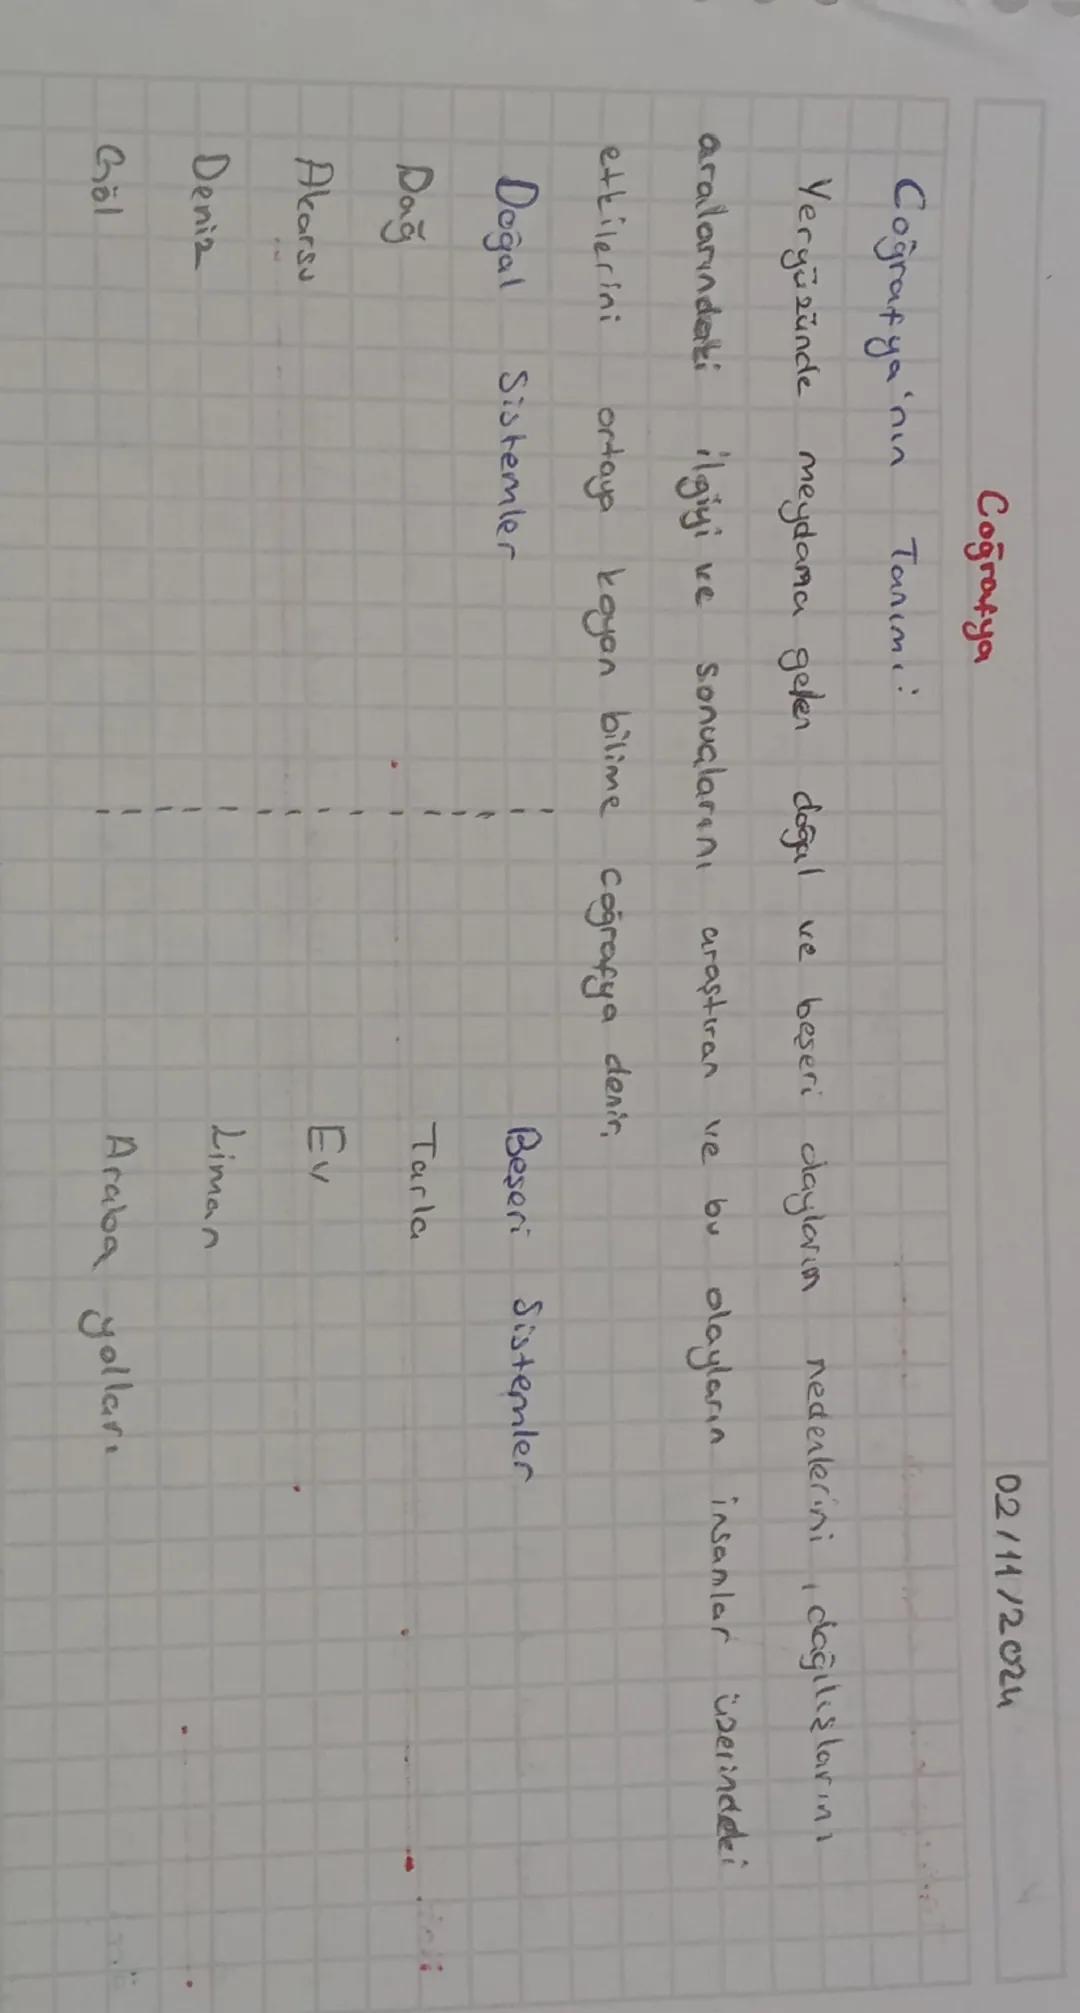 Coğrafya
02/11/2024
Coğrafya'nın Tanımı:
Yeryüzünde meydana gelen doğal ve beşeri olayların nedenlerini, dağılışlarını
aralarındaki ilgiyi ve sonuçlarını araştıran ve bu olayların insanlar üzerindeki
etkilerini ortaya koyan bilime coğrafya denir.
Doğal Sistemler Beşeri Sistemler
Dağ Tarla
Akarsu Ev
Deniz Liman
Göl Araba yolları